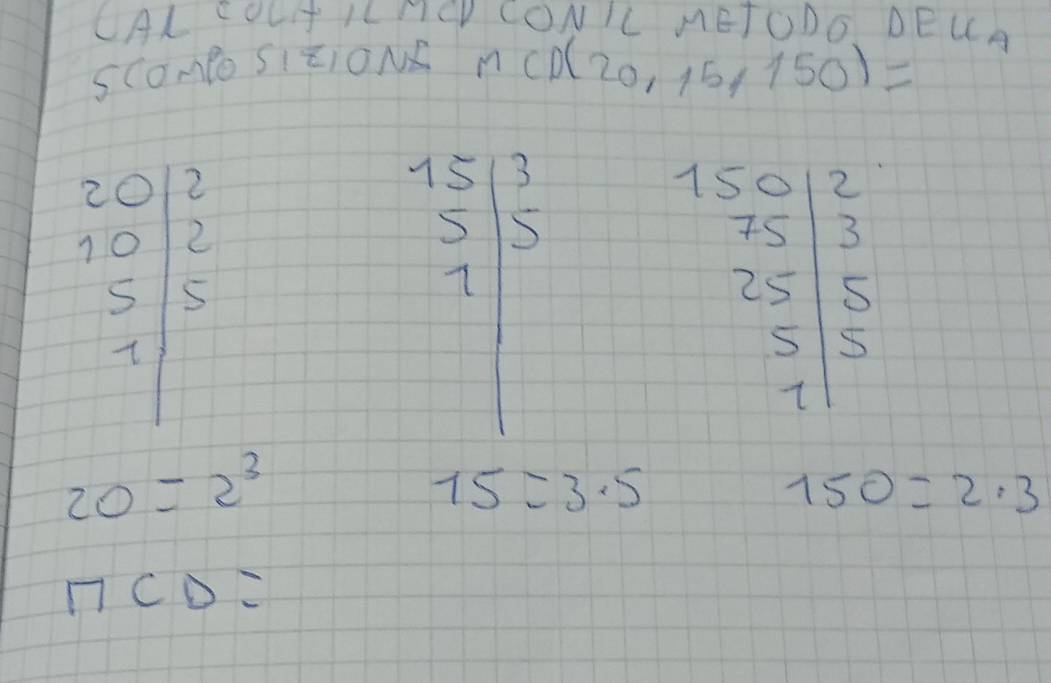 CALCOLA IL MCD CON IL METODO DELLA
SCOMPOSIZIONE MCD(20, 15, 150) =
20 | 2
10 | 2
5 | 5
1
15 | 3
5 | 5
1
150 | 2
75 | 3
25 | 5
5 | 5
1
20 = 2³
15 = 3·5
150 = 2·3
MCD =